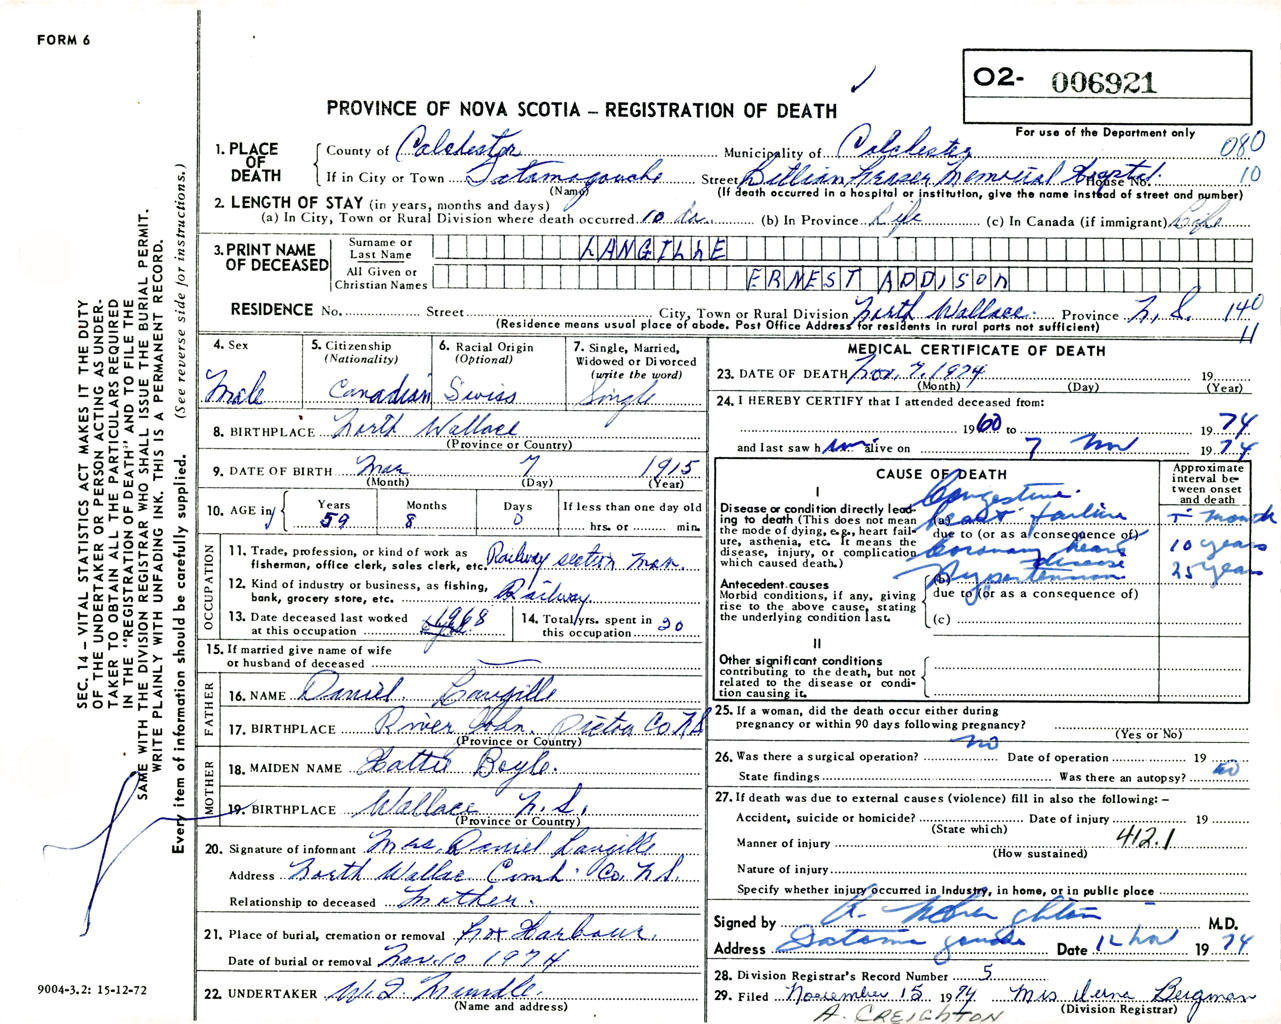 FORM 6
O2- 006921
PROVINCE OF NOVA SCOTIA – REGISTRATION OF DEATH
For use of the Department only
1. PLACE OF DEATH
County of Colchester Municipality of Colchester 080
If in City or Town Tatamagouche Street Lillian Fraser Memorial Hospital House No. 10
(Name) (If death occurred in a hospital or institution, give the name instead of street and number)
2. LENGTH OF STAY (in years, months and days)
(a) In City, Town or Rural Division where death occurred 10 da. (b) In Province Life (c) In Canada (if immigrant) Life
3. PRINT NAME OF DECEASED
Surname or Last Name LANGILLE
All Given or Christian Names ERNEST ADDISON
RESIDENCE No. Street City, Town or Rural Division North Wallace Province N.S. 140
(Residence means usual place of abode. Post Office Address for residents in rural parts not sufficient) 11
4. Sex
Male
5. Citizenship (Nationality)
Canadian
6. Racial Origin (Optional)
Swiss
7. Single, Married, Widowed or Divorced (write the word)
Single
8. BIRTHPLACE North Wallace
(Province or Country)
9. DATE OF BIRTH Mar 7 1915
(Month) (Day) (Year)
10. AGE in Years 59 Months 8 Days 0 If less than one day old
hrs. or min.
OCCUPATION
11. Trade, profession, or kind of work as fisherman, office clerk, sales clerk, etc. Railway section man.
12. Kind of industry or business, as fishing, bank, grocery store, etc. Railway
13. Date deceased last worked at this occupation 1968
14. Total yrs. spent in this occupation 20
15. If married give name of wife or husband of deceased
FATHER
16. NAME Daniel Langille
17. BIRTHPLACE River John Pictou Co N.S
(Province or Country)
MOTHER
18. MAIDEN NAME Hattie Boyle.
19. BIRTHPLACE Wallace N.S.
(Province or Country)
20. Signature of informant Mrs. Daniel Langille
Address North Wallace Cumb. Co. N.S.
Relationship to deceased Mother.
21. Place of burial, cremation or removal Fox Harbour.
Date of burial or removal Nov. 10 1974
22. UNDERTAKER
(Name and address)
MEDICAL CERTIFICATE OF DEATH
23. DATE OF DEATH Nov. 7. 1974 19
(Month) (Day) (Year)
24. I HEREBY CERTIFY that I attended deceased from:
1960 to 1974
and last saw him alive on 7 Nov 1974
CAUSE OF DEATH
Approximate interval between onset and death
I
Disease or condition directly leading to death (This does not mean the mode of dying, e.g., heart failure, asthenia, etc. It means the disease, injury, or complication which caused death.)
(a) Congestive heart failure month
due to (or as a consequence of)
Coronary heart disease 10 years
Antecedent causes
Morbid conditions, if any, giving rise to the above cause, stating the underlying condition last.
(b) Hypertension 25 years
due to (or as a consequence of)
(c)
II
Other significant conditions contributing to the death, but not related to the disease or condition causing it.
25. If a woman, did the death occur either during pregnancy or within 90 days following pregnancy?
(Yes or No)
26. Was there a surgical operation? no Date of operation 19
State findings Was there an autopsy? no
27. If death was due to external causes (violence) fill in also the following: –
Accident, suicide or homicide? Date of injury 19
(State which)
Manner of injury 412.1
(How sustained)
Nature of injury
Specify whether injury occurred in Industry, in home, or in public place
Signed by M.D.
Address Tatamagouche Date 12 Nov 1974
28. Division Registrar's Record Number 5
29. Filed November 15 1974 Mrs Bergman
(Division Registrar)
A. CREIGHTON
SEC. 14 – VITAL STATISTICS ACT MAKES IT THE DUTY
OF THE UNDERTAKER OR PERSON ACTING AS UNDER-
TAKER TO OBTAIN ALL THE PARTICULARS REQUIRED
IN THE "REGISTRATION OF DEATH" AND TO FILE THE
SAME WITH THE DIVISION REGISTRAR WHO SHALL ISSUE THE BURIAL PERMIT.
WRITE PLAINLY WITH UNFADING INK. THIS IS A PERMANENT RECORD.
Every item of information should be carefully supplied. (See reverse side for instructions.)
9004-3.2: 15-12-72